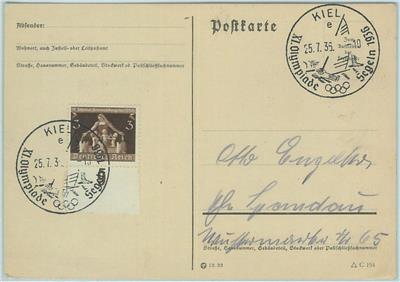 Absender:
Wohnort, auch Zustell- oder Leitpostamt
Straße, Hausnummer, Gebäudeteil, Stockwerk od. Postschließfachnummer
Postkarte
KIEL
e
25.7.36. 10
XI. Olympiade 1936
Segeln
3 3
Deutsches Reich
KIEL
e
25.7.3
XI. Olympiade
Segeln
Otto
Spandau
65
Straße, Hausnummer, Gebäudeteil, Stockwerk oder Postschließfachnummer
C 154